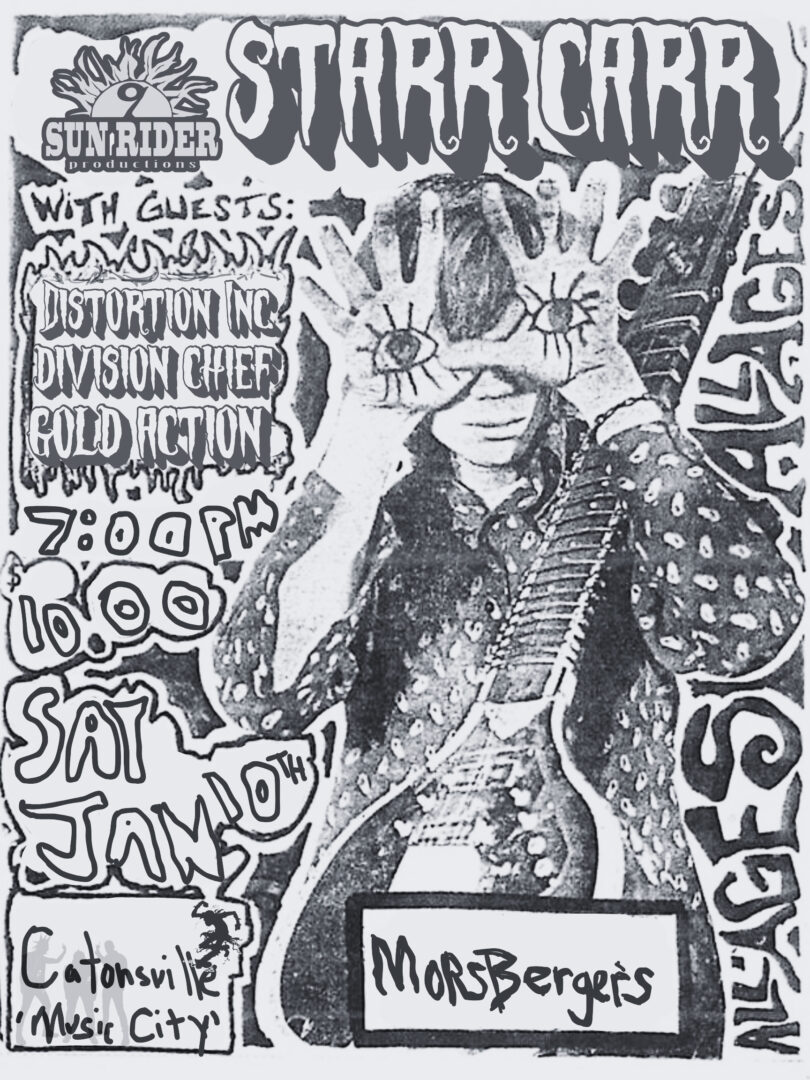 STARR CARR
9
SUN RIDER
productions
WITH GUESTS:
DISTORTION INC
DIVISION CHIEF
GOLD ACTION
7:00 PM
$10.00
SAT
JAN 10TH
Catonsville
'Music City'
MORSBergers
ALL AGES
ALL AGES